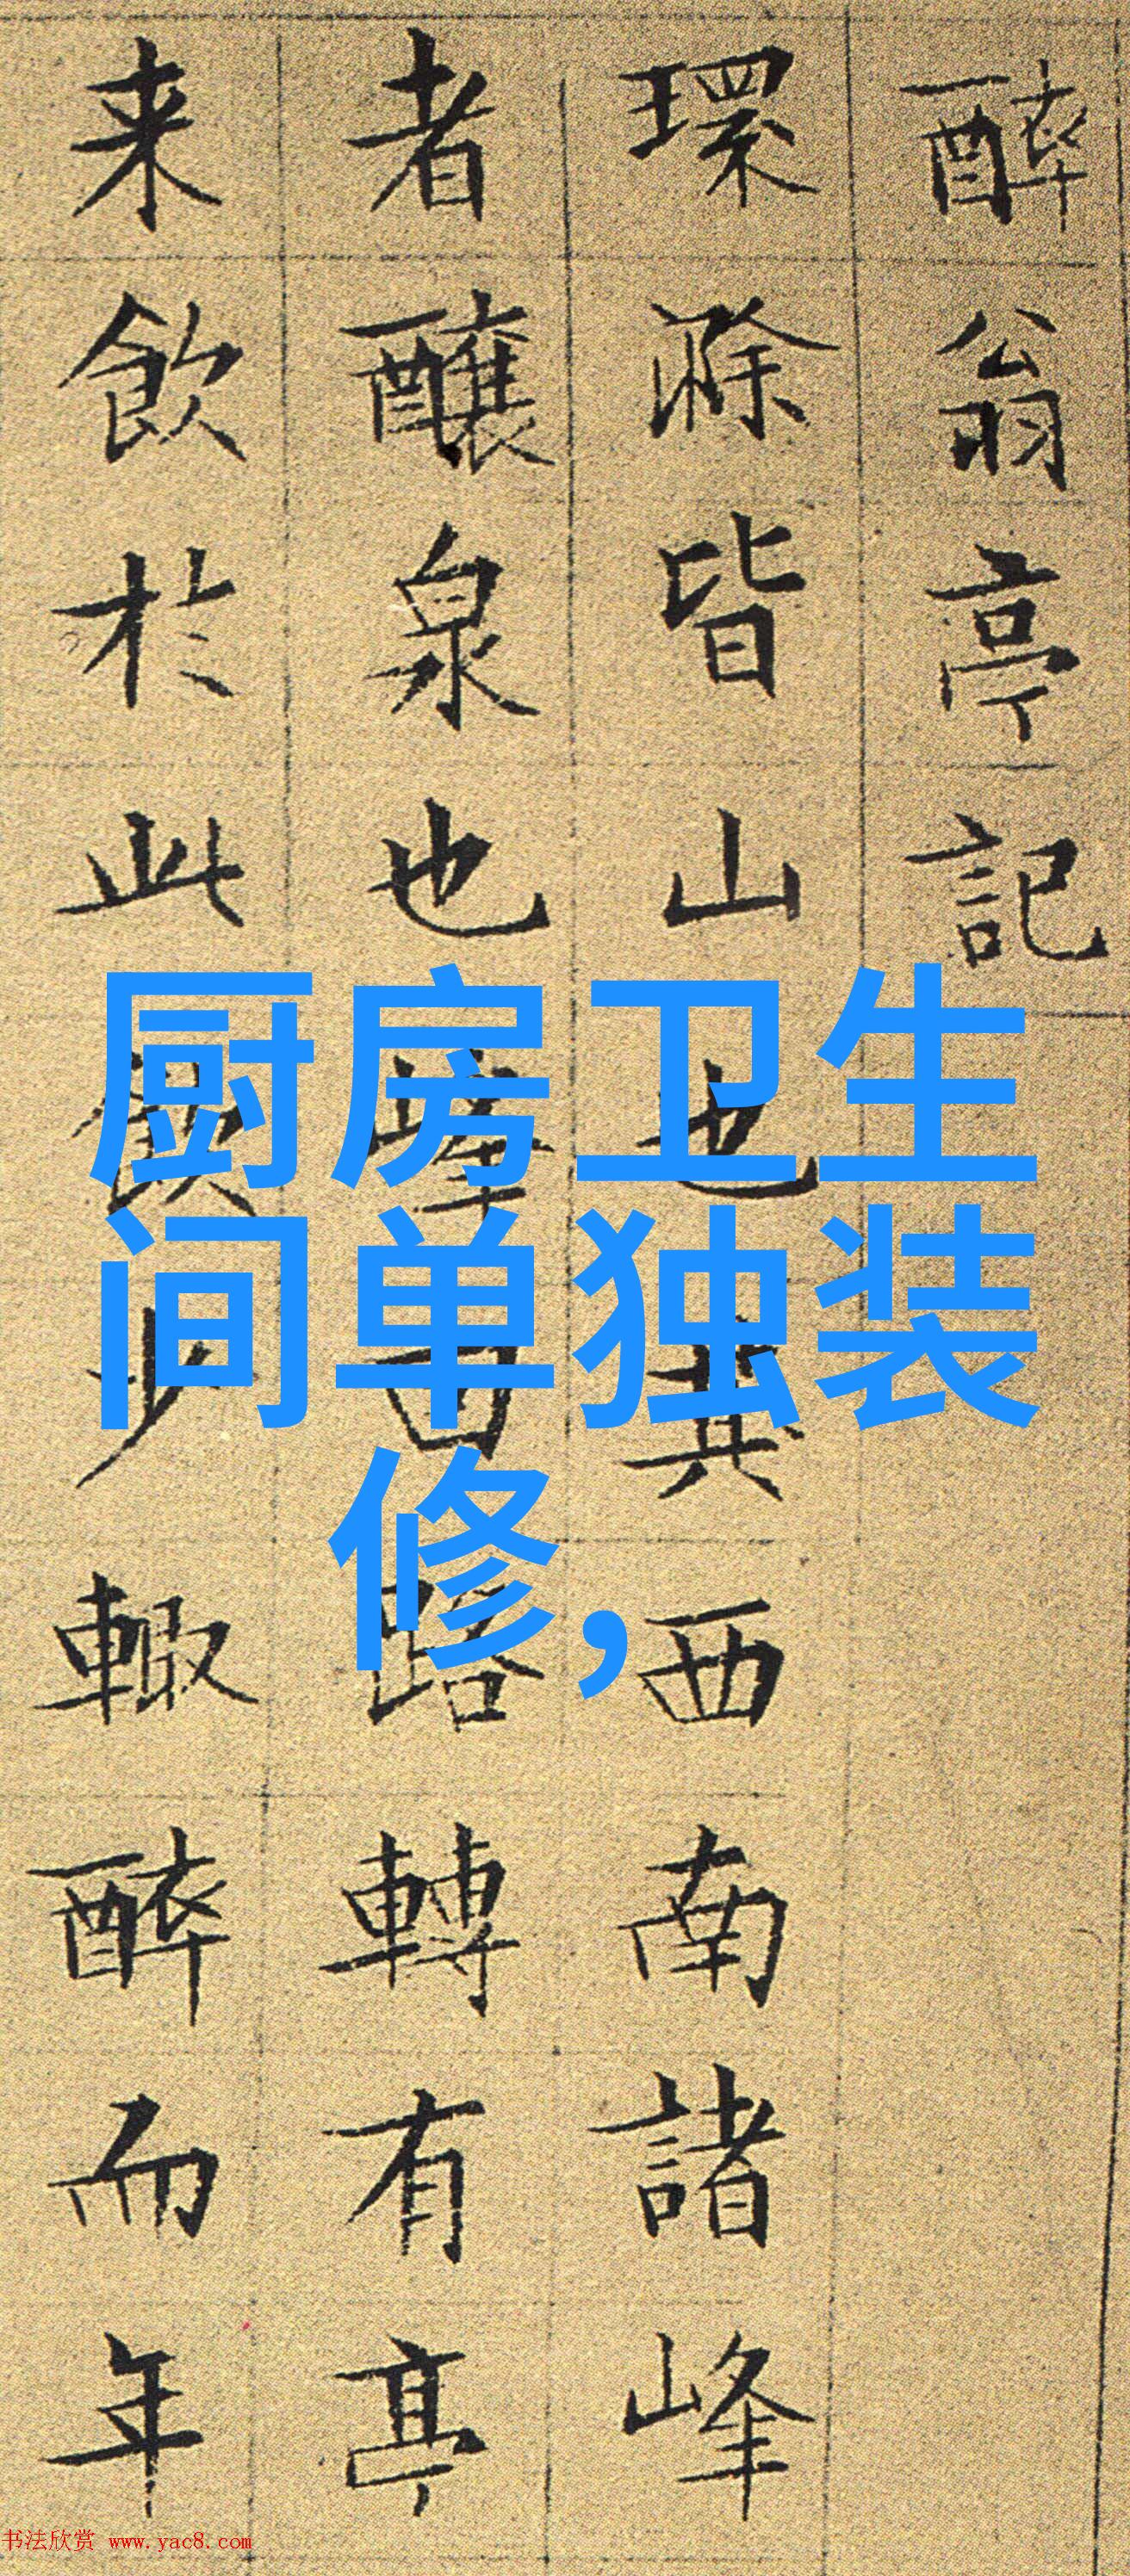 醉翁亭記
環滁皆山也其西南諸峰
者釀泉也峰回路轉有亭
来飲於此飲少輒醉而年
厨房卫生
间单独装
修,
书法欣赏 www.yac8.com